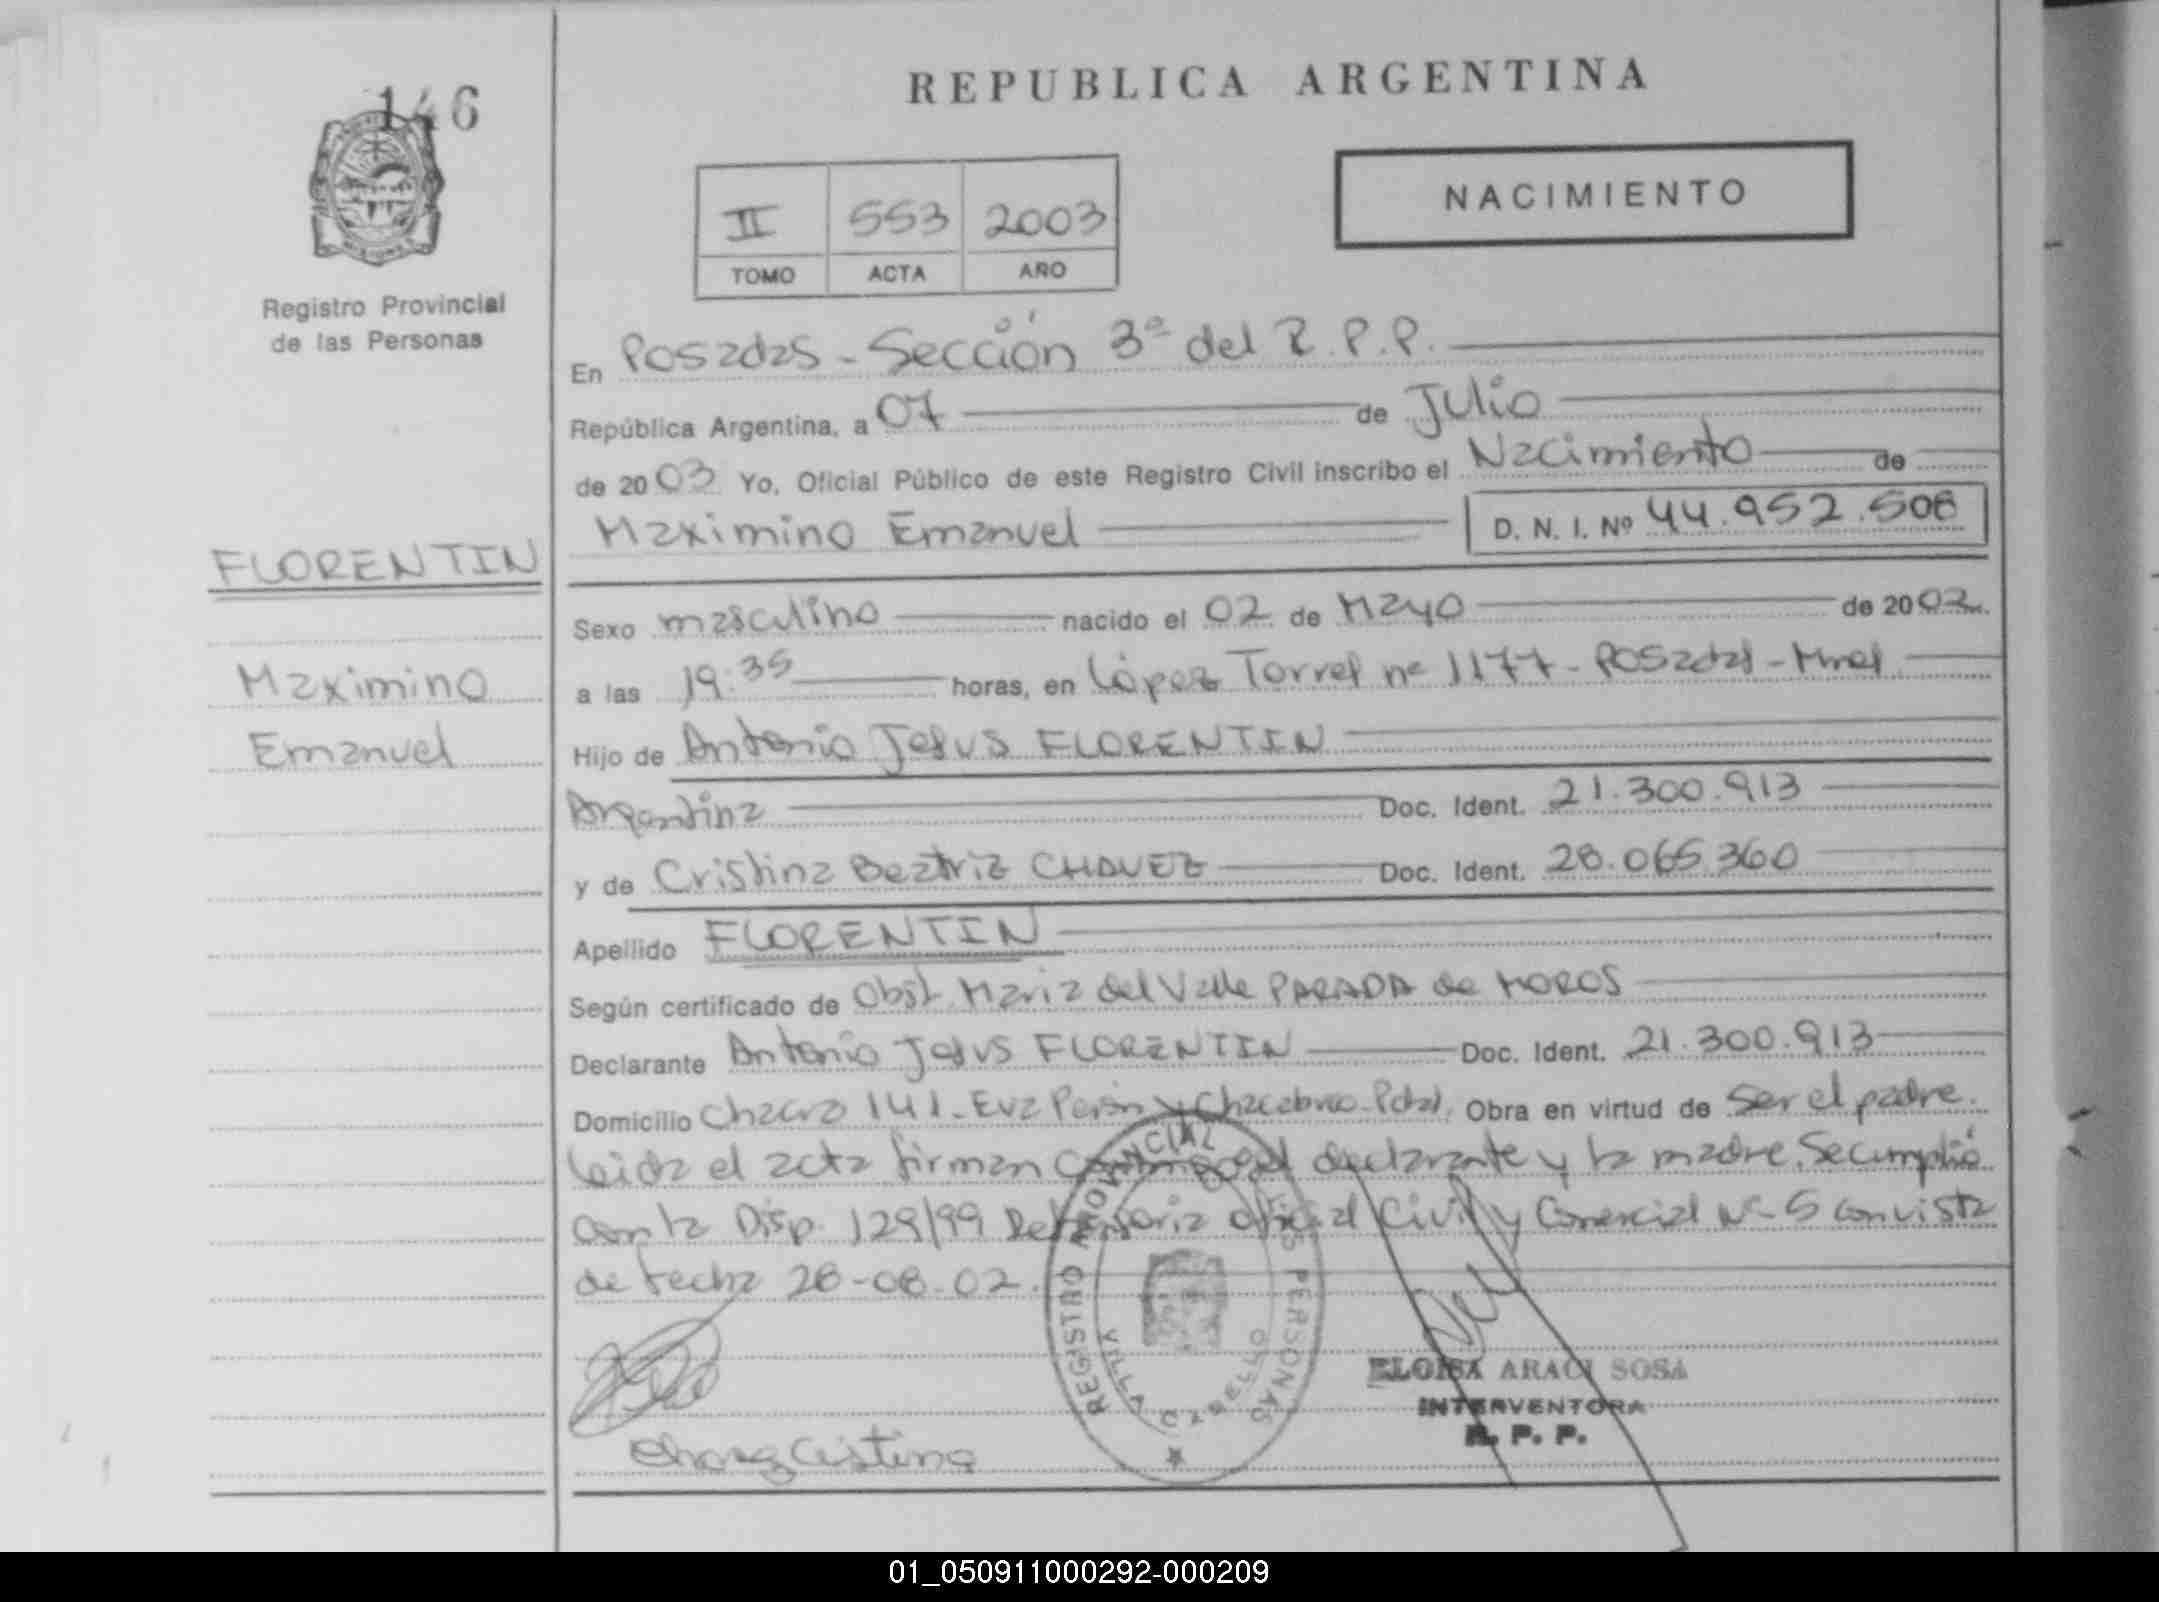 146
REPUBLICA ARGENTINA
NACIMIENTO
II 553 2003
TOMO ACTA AÑO
Registro Provincial
de las Personas
En Posadas - Sección 3ª del R.P.P.
República Argentina, a 07 de Julio
de 2003 Yo, Oficial Público de este Registro Civil inscribo el Nacimiento de
Maximino Emanuel D. N. I. Nº 44.952.508
FLORENTIN
Maximino
Emanuel
Sexo masculino nacido el 02 de Mayo de 2002
a las 19:35 horas, en López Torres nº 1177 - Posadas - Mnes
Hijo de Antonio Jesus FLORENTIN
Argentina Doc. Ident. 21.300.913
y de Cristina Beatriz CHAVEZ Doc. Ident. 28.065.360
Apellido FLORENTIN
Según certificado de Obst. Maria del Valle PARADA de MOROS
Declarante Antonio Jesus FLORENTIN Doc. Ident. 21.300.913
Domicilio Chacra 141 - Eva Perón y Chacabuco - Pdas. Obra en virtud de ser el padre.
Leida el acta firman conmigo el declarante y la madre. Se cumplió
con la Disp. 129/99 Defensoria oficial Civil y Comercial Nº 5 con vista
de fecha 28-08-02.
REGISTRO PROVINCIAL DE LAS PERSONAS
VILLA CABELLO
ELOISA ARACI SOSA
INTERVENTORA
R. P. P.
Chavez Cristina
01_050911000292-000209